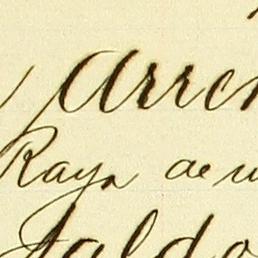 Arren
Raya de
Saldo